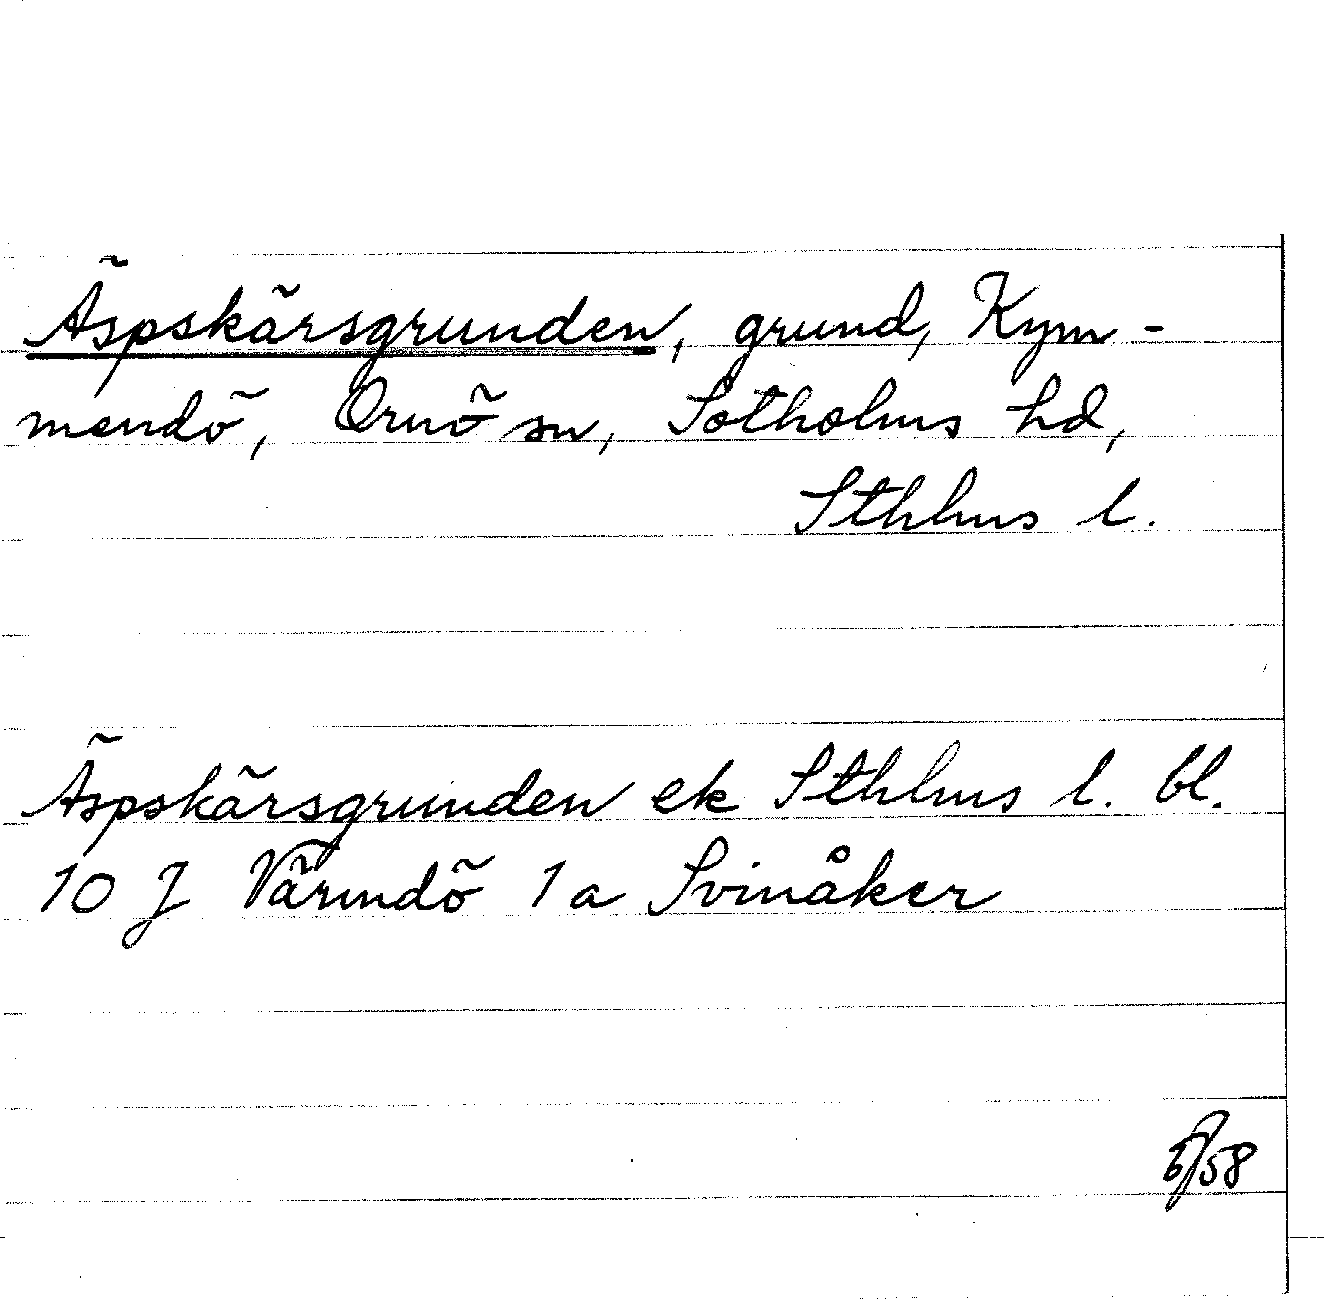 Äspskärsgrunden, grund, Kym-
mendö, Ornö sn, Sotholms hd,
Sthlms l.
Äspskärsgrunden ek Sthlms l. bl.
10 J Värmdö 1a Svinåker
/58